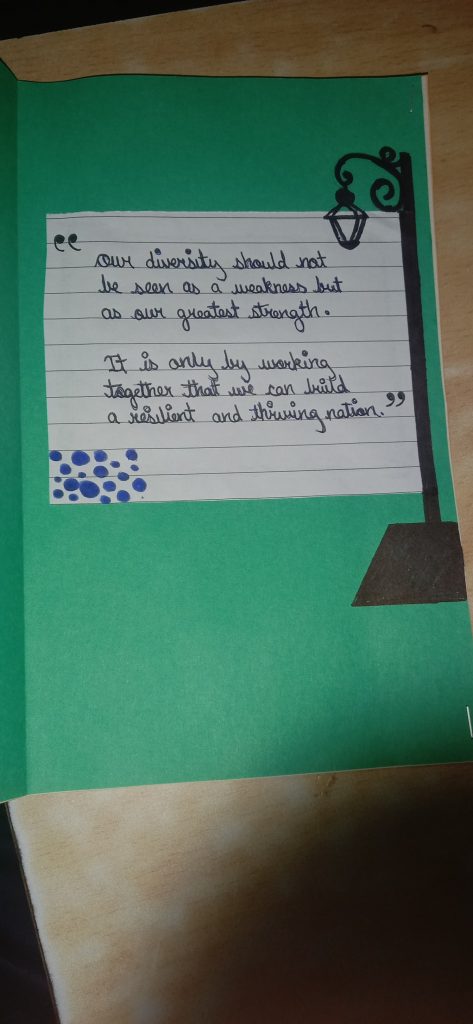 “our diversity should not
be seen as a weakness but
as our greatest strength.
It is only by working
together that we can build
a resilient and thriving nation.”